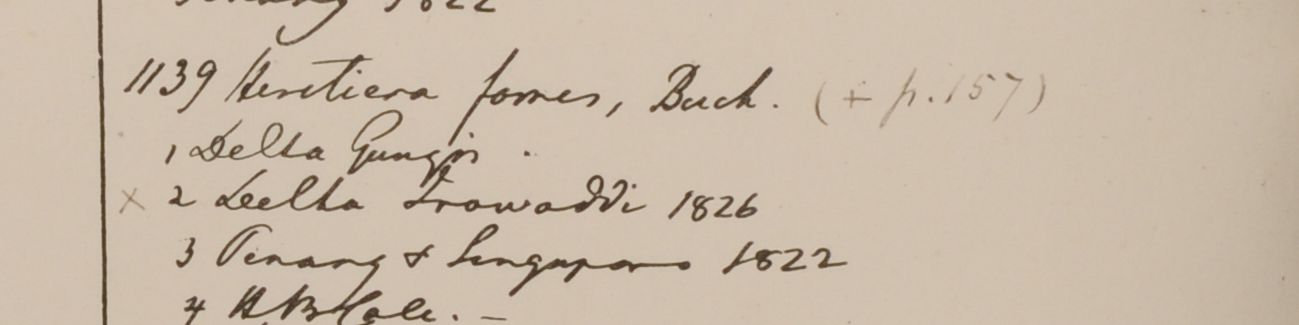 Penang 1822
1139 Heretiera fomes, Buch. (+ p. 157)
1 Delta Gangis.
x 2 Delta Irawaddi 1826
3 Penang & Singapore 1822
4 H.B. Calc. –